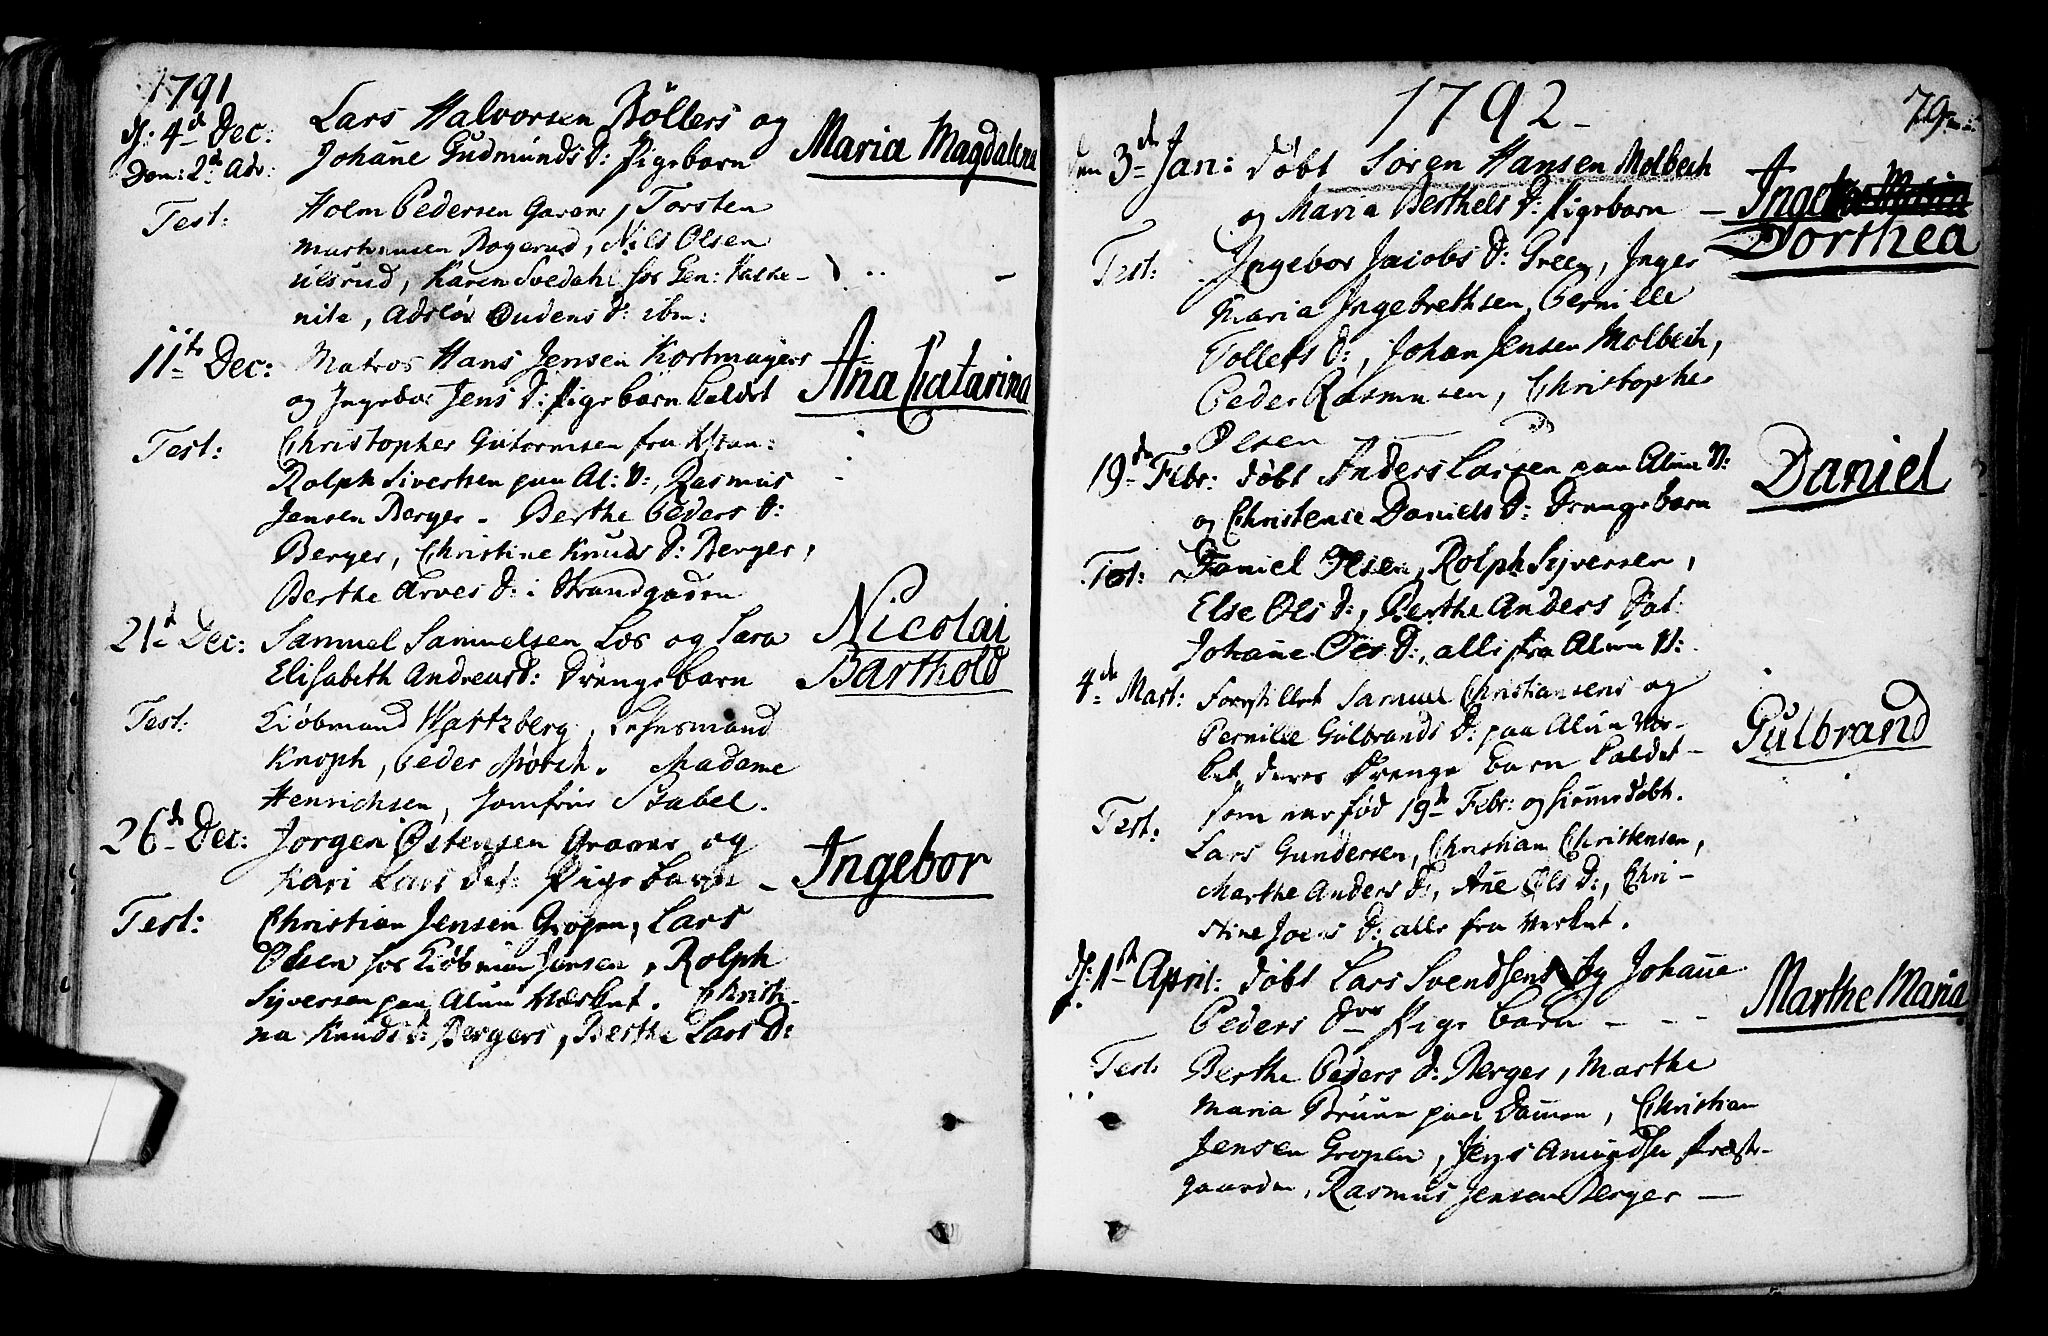 1791
D: 4de Dec: Lars Halvorsen Böllers og
Dom: 2d Adv: Johañe Gudmunds D: Pigebarn Maria Magdalena
Test: Holm Pedersen Garver, Torsten
Rogerud, Nils Olsen
ulsrud, Karen Svedahl hos Gen:
nite, Adslöv Oudens D: ibm:
11te Dec: Matros Hans Jensen Kortmagers
og Ingebor Jens D: Pigebarn kaldet Aña Catarina
Test: Christopher Gutormsen fra
Rolph Sivertsen paa Al: V:, Rasmus
Jensen Berger. Berthe Peders D:
Berger, Christine Knuds D: Berger,
Berthe Arves D: i Strandgaden
21d Dec: Samuel Samuelsen Los og Sara Nicolai
Elisabeth Andreas D: Drengebarn Barthold
Test: Kiöbmand Wartzberg, Lehnsmand
Knoph, Peder Mörch. Madame
Henrichsen, Jomfrue Stabel.
26de Dec: Jorgen Östensen Graver og
Kari Lars Det: Pigebarn - Ingebor
Test: Christian Jensen Gropen, Lars
Olsen hos Kiöbman Jensen, Rolph
Syversen paa Alun Værket. Christi-
na Knuds D: Bergers, Berthe Lars D:
1792 - 79
den 3de Jan: döbt Sören Hansen Molbech
og Maria Berthels D: Pigebarn - Inge
Dorthea
Test: Ingebor Jacobs D: Green, Inger
Maria Ingebrethsen, Pernille
Tollefs D:, Johan Jensen Molbech,
Peder Rasmussen, Christopher
Olsen
19de Febr: döbt Anders Larsen paa Alun V: Daniel
og Christense Daniels D: Drengebarn
Test: Daniel Olsen, Rolph Syversen,
Else Ols D:, Berthe Anders Dat:
Johañe Oles D:, alle fra Alun V:
4de Mart: Forestillet Samuel Christiansens og
Pernille Gulbrands D: paa Alun Vær- Gulbrand
ket, deres Drenge barn kaldet -
som var föd 19de Febr: og hiemedöbt.
Test: Lars Gundersen, Christian Christensen,
Marthe Anders D:, Añe Ols D:, Chri-
stine Joens D: alle fra Værket.
D: 1ste April: döbt Lars Svendsens og Johañe
Peders Dtrs Pige barn - - - Marthe Maria
Test: Berthe Peders D: Berger, Marthe
Maria Bruun paa Damen, Christian
Jensen Gropen, Jens Amundsen Præste-
gaarden, Rasmus Jensen Berger -